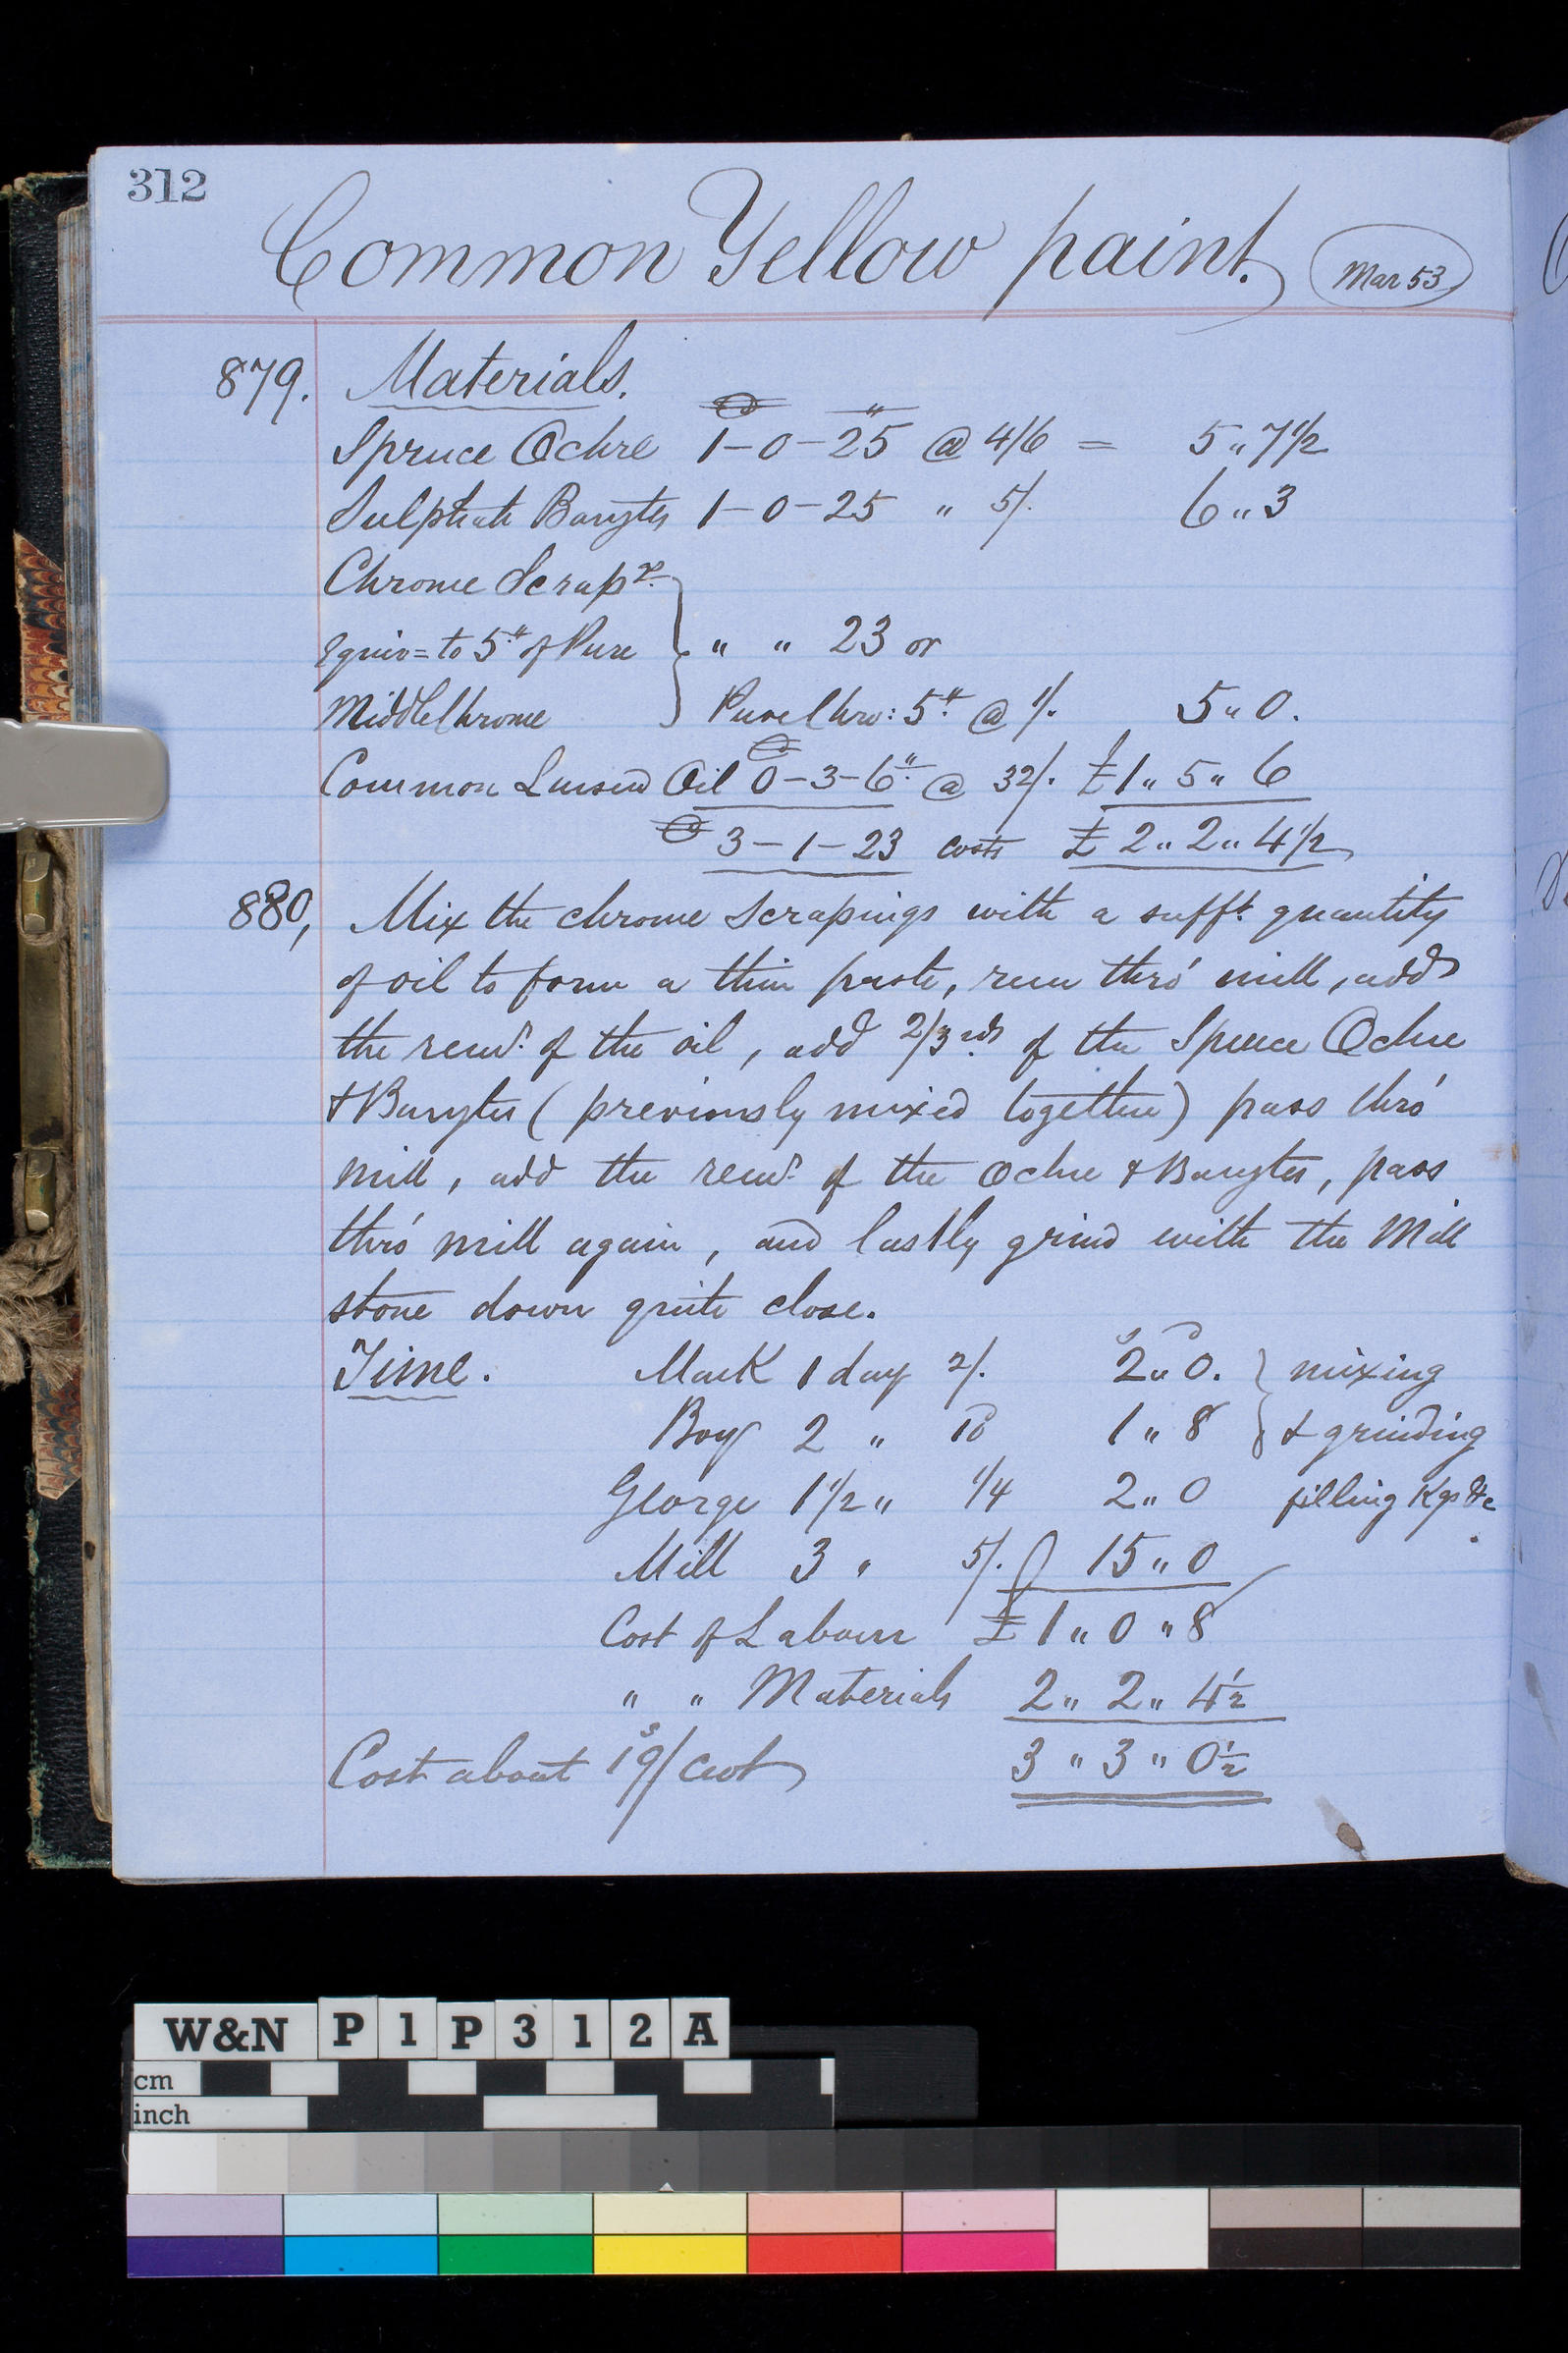 312
Common Yellow paint.
Mar 53
879. Materials.
Spruce Ochre 1-0-25 @ 4/6 = 5 " 7½
Sulphate Barytes 1-0-25 " 5/. 6 " 3
Chrome Scrapgs.
Equiv= to 5# of Pure " " 23 or
Middle Chrome Pure Chro: 5# @ 1/. 5 " 0.
Common Linseed Oil 0-3-6# @ 32/. £1 " 5 " 6
3-1-23 costs £2 " 2 " 4½
880, Mix the chrome scrapings with a sufft. quantity
of oil to form a thin paste, run thro' mill, add
the remr. of the oil, add 2/3rds of the Spruce Ochre
& Barytes (previously mixed together) pass thro'
mill, add the remr. of the Ochre & Barytes, pass
thro' mill again, and lastly grind with the Mill
stone down quite close.
Time. Mark 1 day 2/. 2 " 0. } mixing
Boy 2 " 10 1 " 8 } & grinding
George 1½ " 1/4 2 " 0 filling Kgs &c
Mill 3 " 5/. 15 " 0
Cost of Labour £1 " 0 " 8
" " Materials 2 " 2 " 4½
Cost about 19s/cwt 3 " 3 " 0½
W&N P1P312A
cm
inch